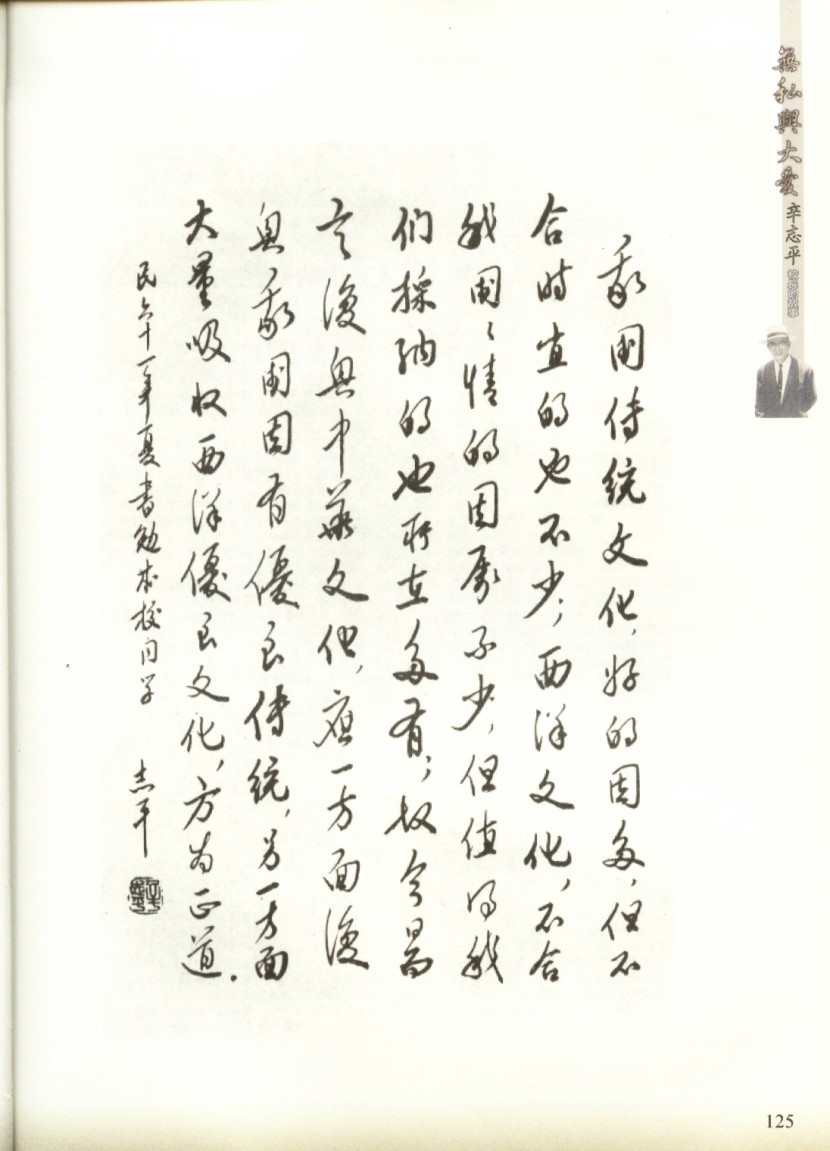 無私與大愛 辛志平 校長的故事
我國傳統文化,好的固多,但不
合时宜的也不少;西洋文化,不合
我國〻情的固屬不少,但值得我
们採納的也所在多有;故今昌
言復興中華文化,應一方面復
興,我國固有優良傳統,另一方面
大量吸收西洋優良文化,方為正道.
民六十一年夏書勉本校同学 志平
125